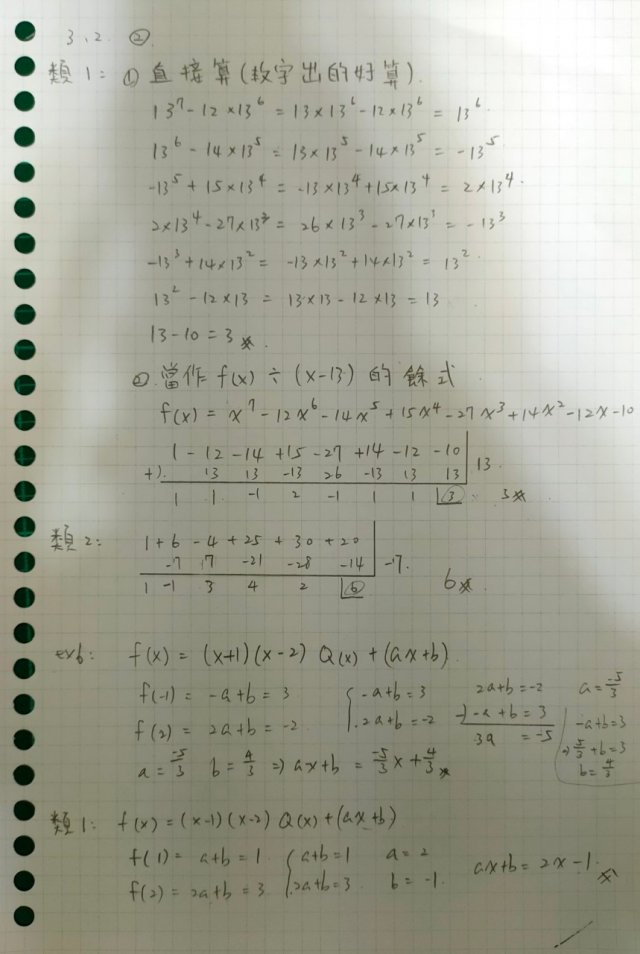 3.2. ②
類1: ① 直接算(數字出的好算).
13⁷-12×13⁶ = 13×13⁶-12×13⁶ = 13⁶
13⁶-14×13⁵ = 13×13⁵-14×13⁵ = -13⁵
-13⁵+15×13⁴ = -13×13⁴+15×13⁴ = 2×13⁴.
2×13⁴-27×13³ = 26×13³-27×13³ = -13³
-13³+14×13² = -13×13²+14×13² = 13²
13²-12×13 = 13×13-12×13 = 13
13-10 = 3 ※.
②. 當作 f(x) ÷ (x-13) 的 餘式
f(x) = x⁷-12x⁶-14x⁵+15x⁴-27x³+14x²-12x-10
1 -12 -14 +15 -27 +14 -12 -10 | 13
+). 13 13 -13 26 -13 13 13
1 1 -1 2 -1 1 1 ③ 3※
類2: 1+6-4+25+30+20 | -7.
-7 7 -21 -28 -14
1 -1 3 4 2 ⑥ 6※
ex6: f(x) = (x+1)(x-2) Q(x)+(ax+b)
f(-1) = -a+b = 3 { -a+b=3 2a+b=-2 a=-5/3
f(2) = 2a+b = -2 2a+b=-2 -) -a+b=3 -a+b=3
3a = -5 ⇒ 5/3+b=3
a = -5/3 b = 4/3 ⇒ ax+b = -5/3x+4/3 ※ b=4/3
類1: f(x) = (x-1)(x-2) Q(x)+(ax+b)
f(1) = a+b = 1. { a+b=1 a=2 ax+b = 2x-1. ※
f(2) = 2a+b = 3 2a+b=3 b=-1.